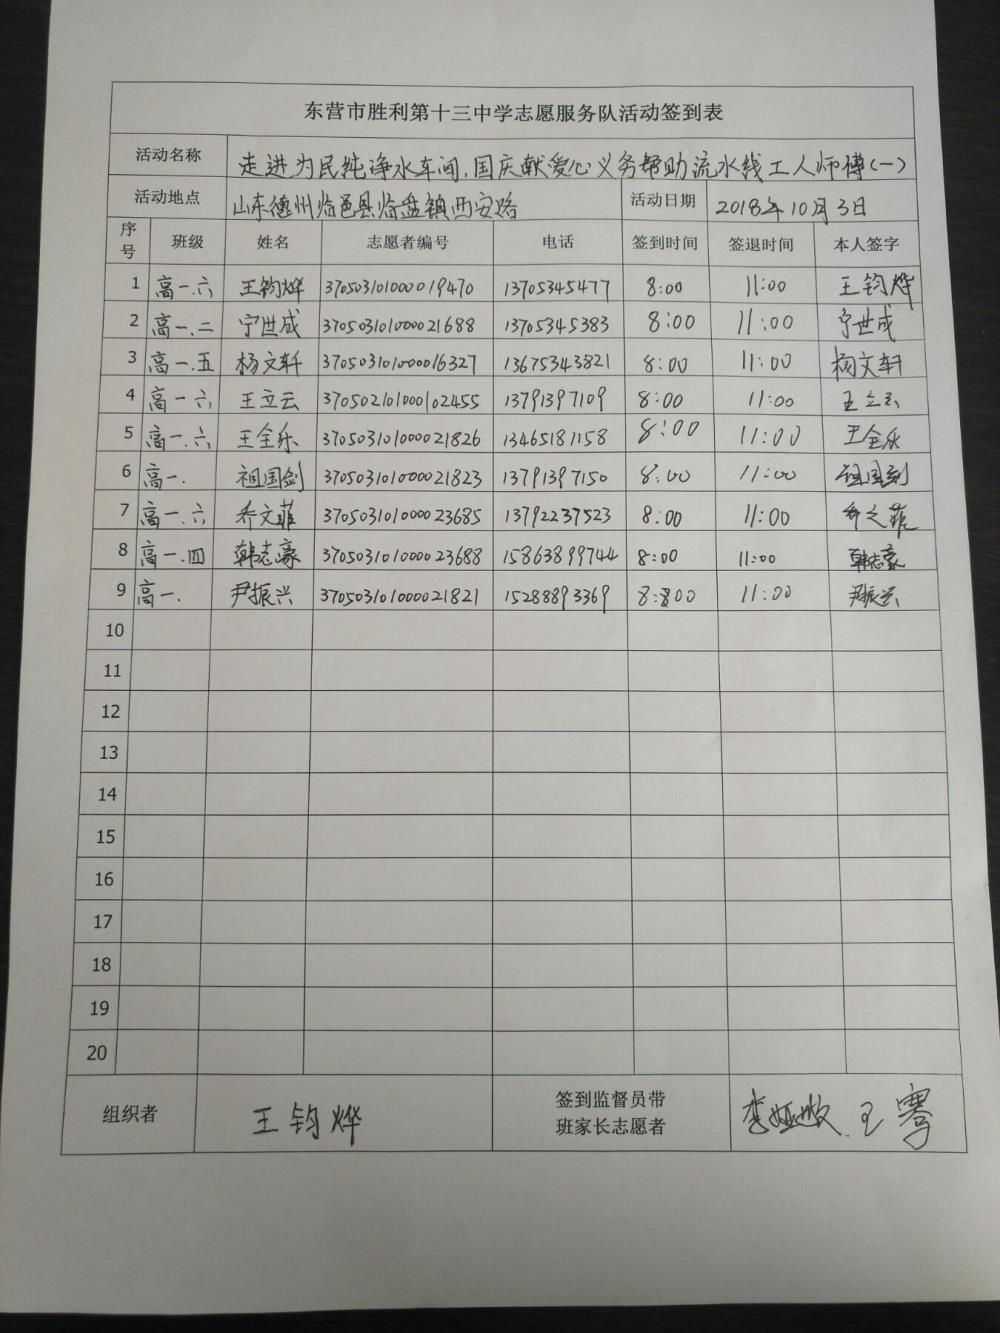 东营市胜利第十三中学志愿服务队活动签到表
活动名称 走进为民纯净水车间,国庆献爱心义务帮助流水线工人师傅(一)
活动地点 山东德州临邑县临盘镇西安路 活动日期 2018年10月3日
序号 班级 姓名 志愿者编号 电话 签到时间 签退时间 本人签字
1 高一.六 王钧烨 3705031010000019470 13705345477 8:00 11:00 王钧烨
2 高一.二 宁世成 370503101000021688 13705345383 8:00 11:00 宁世成
3 高一.五 杨文轩 370503101000016327 13675343821 8:00 11:00 杨文轩
4 高一六 王立云 370502101000102455 13791397109 8:00 11:00 王立云
5 高一.六 王全乐 370503101000021826 13465181158 8:00 11:00 王全乐
6 高一. 祖国剑 370503101000021823 13791397150 8:00 11:00 祖国剑
7 高一.六 乔文菲 370503101000023685 13792237523 8:00 11:00 乔文菲
8 高一.四 韩志豪 370503101000023688 15863899744 8:00 11:00 韩志豪
9 高一. 尹振兴 370503101000021821 15288893369 8:00 11:00 尹振兴
10
11
12
13
14
15
16
17
18
19
20
组织者 王钧烨 签到监督员带
班家长志愿者